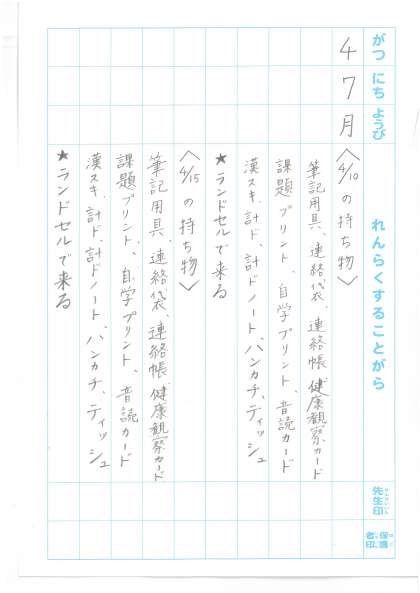 がつ にち ようび
れんらくすることがら
先生印
保護者印
4 7 月
〈4/10の持ち物〉
筆記用具、連絡袋、連絡帳、健康観察カード
課題プリント、自学プリント、音読カード
漢スキ、計ド、計ドノート、ハンカチ、ティッシュ
★ランドセルで来る
〈4/15の持ち物〉
筆記用具、連絡袋、連絡帳、健康観察カード
課題プリント、自学プリント、音読カード
漢スキ、計ド、計ドノート、ハンカチ、ティッシュ
★ランドセルで来る